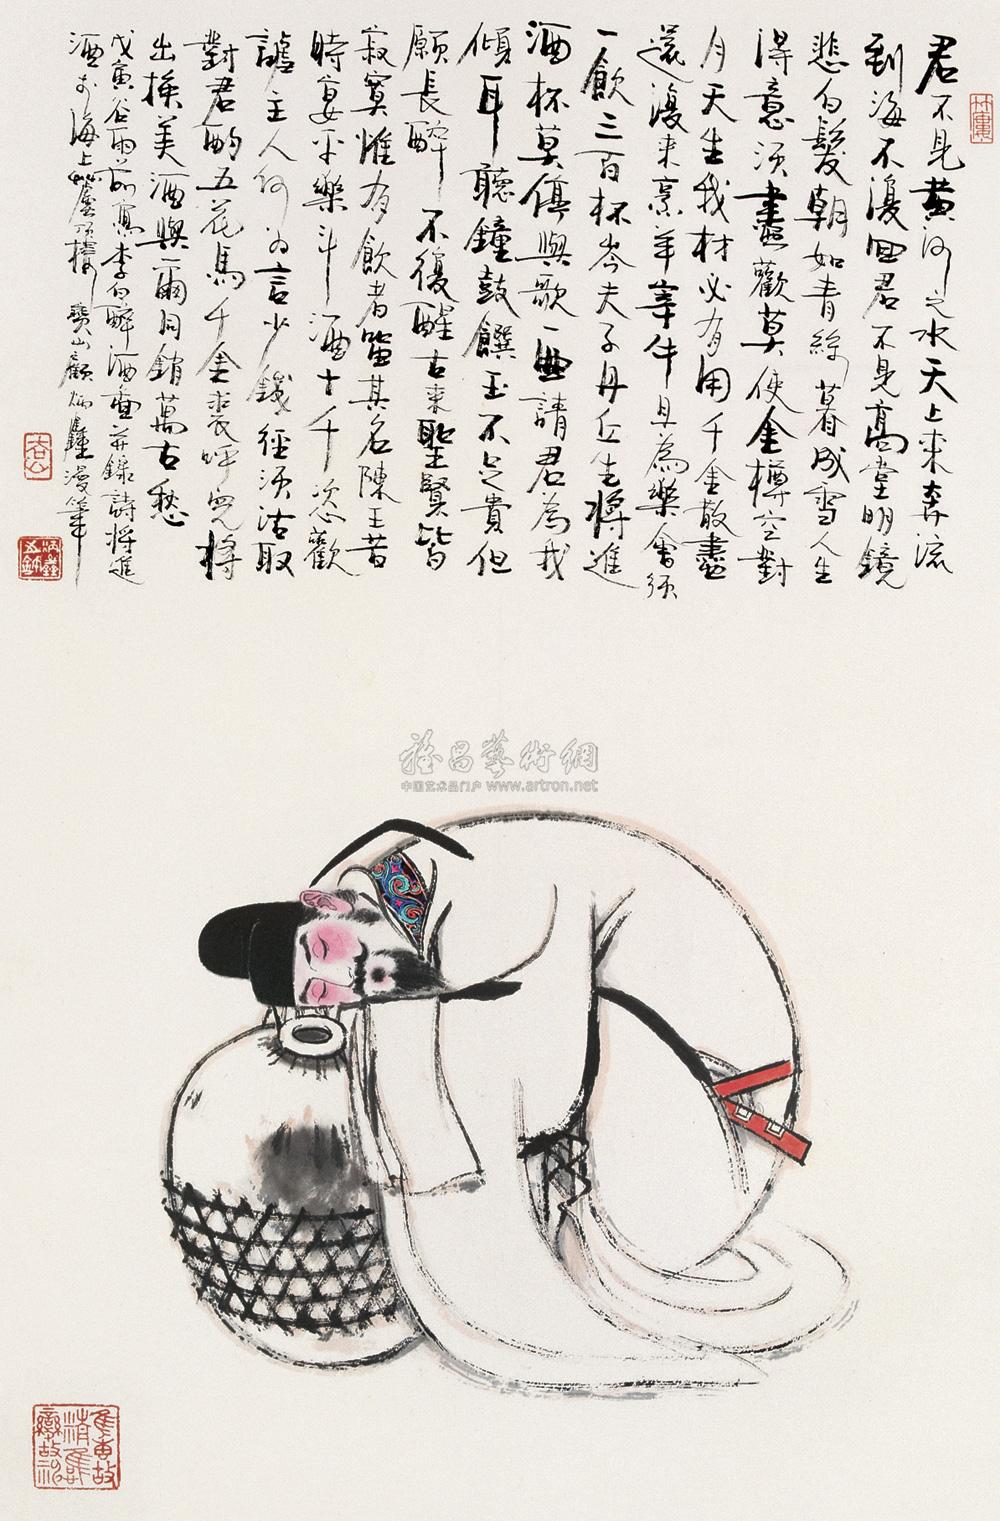 君不見黃河之水天上來奔流
到海不復回君不見高堂明鏡
悲白髮朝如青絲暮成雪人生
得意須盡歡莫使金樽空對
月天生我材必有用千金散盡
還復來烹羊宰牛且為樂會須
一飲三百杯岑夫子丹丘生將進
酒杯莫停與歌一曲請君為我
傾耳聽鐘鼓饌玉不足貴但
願長醉不復醒古來聖賢皆
寂寞惟有飲者留其名陳王昔
時宴平樂斗酒十千恣歡
謔主人何為言少錢徑須沽取
對君酌五花馬千金裘呼兒將
出換美酒與爾同銷萬古愁
戊寅谷雨前寫李白醉酒圖並錄詩將進
酒於海上
寶山顧炳鑫漫筆
雅昌藝術網
中国艺术品门户 www.artron.net